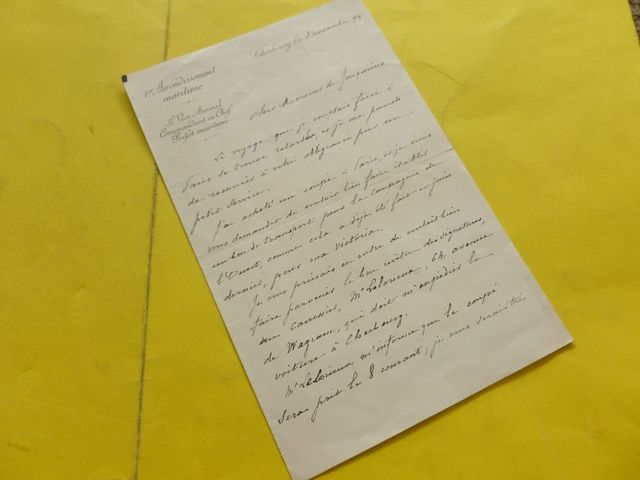 1er Arrondissement
maritime
Le Vice-Amiral
Commandant en Chef
Préfet maritime
Cherbourg le 5 novembre 99
Cher Monsieur de Jonquières,
Le voyage que je comptais faire à
Paris se trouve retardé, et je me permets
de recourir à votre obligeance pour un
petit service.
J'ai acheté un coupé à Paris, et je viens
vous demander de vouloir bien faire établir
un bon de transport pour la Compagnie de
l'Ouest, comme cela a déjà été fait en juin
dernier, pour ma victoria.
Je vous prierais en outre de vouloir bien
faire parvenir le bon revêtu des signatures,
au Carrossier, Mr Lelorieux, 64, avenue
de Wagram, qui doit m'expédier la
voiture à Cherbourg.
Mr Lelorieux m'informe que le coupé
sera prêt le 8 courant; je vous serais très